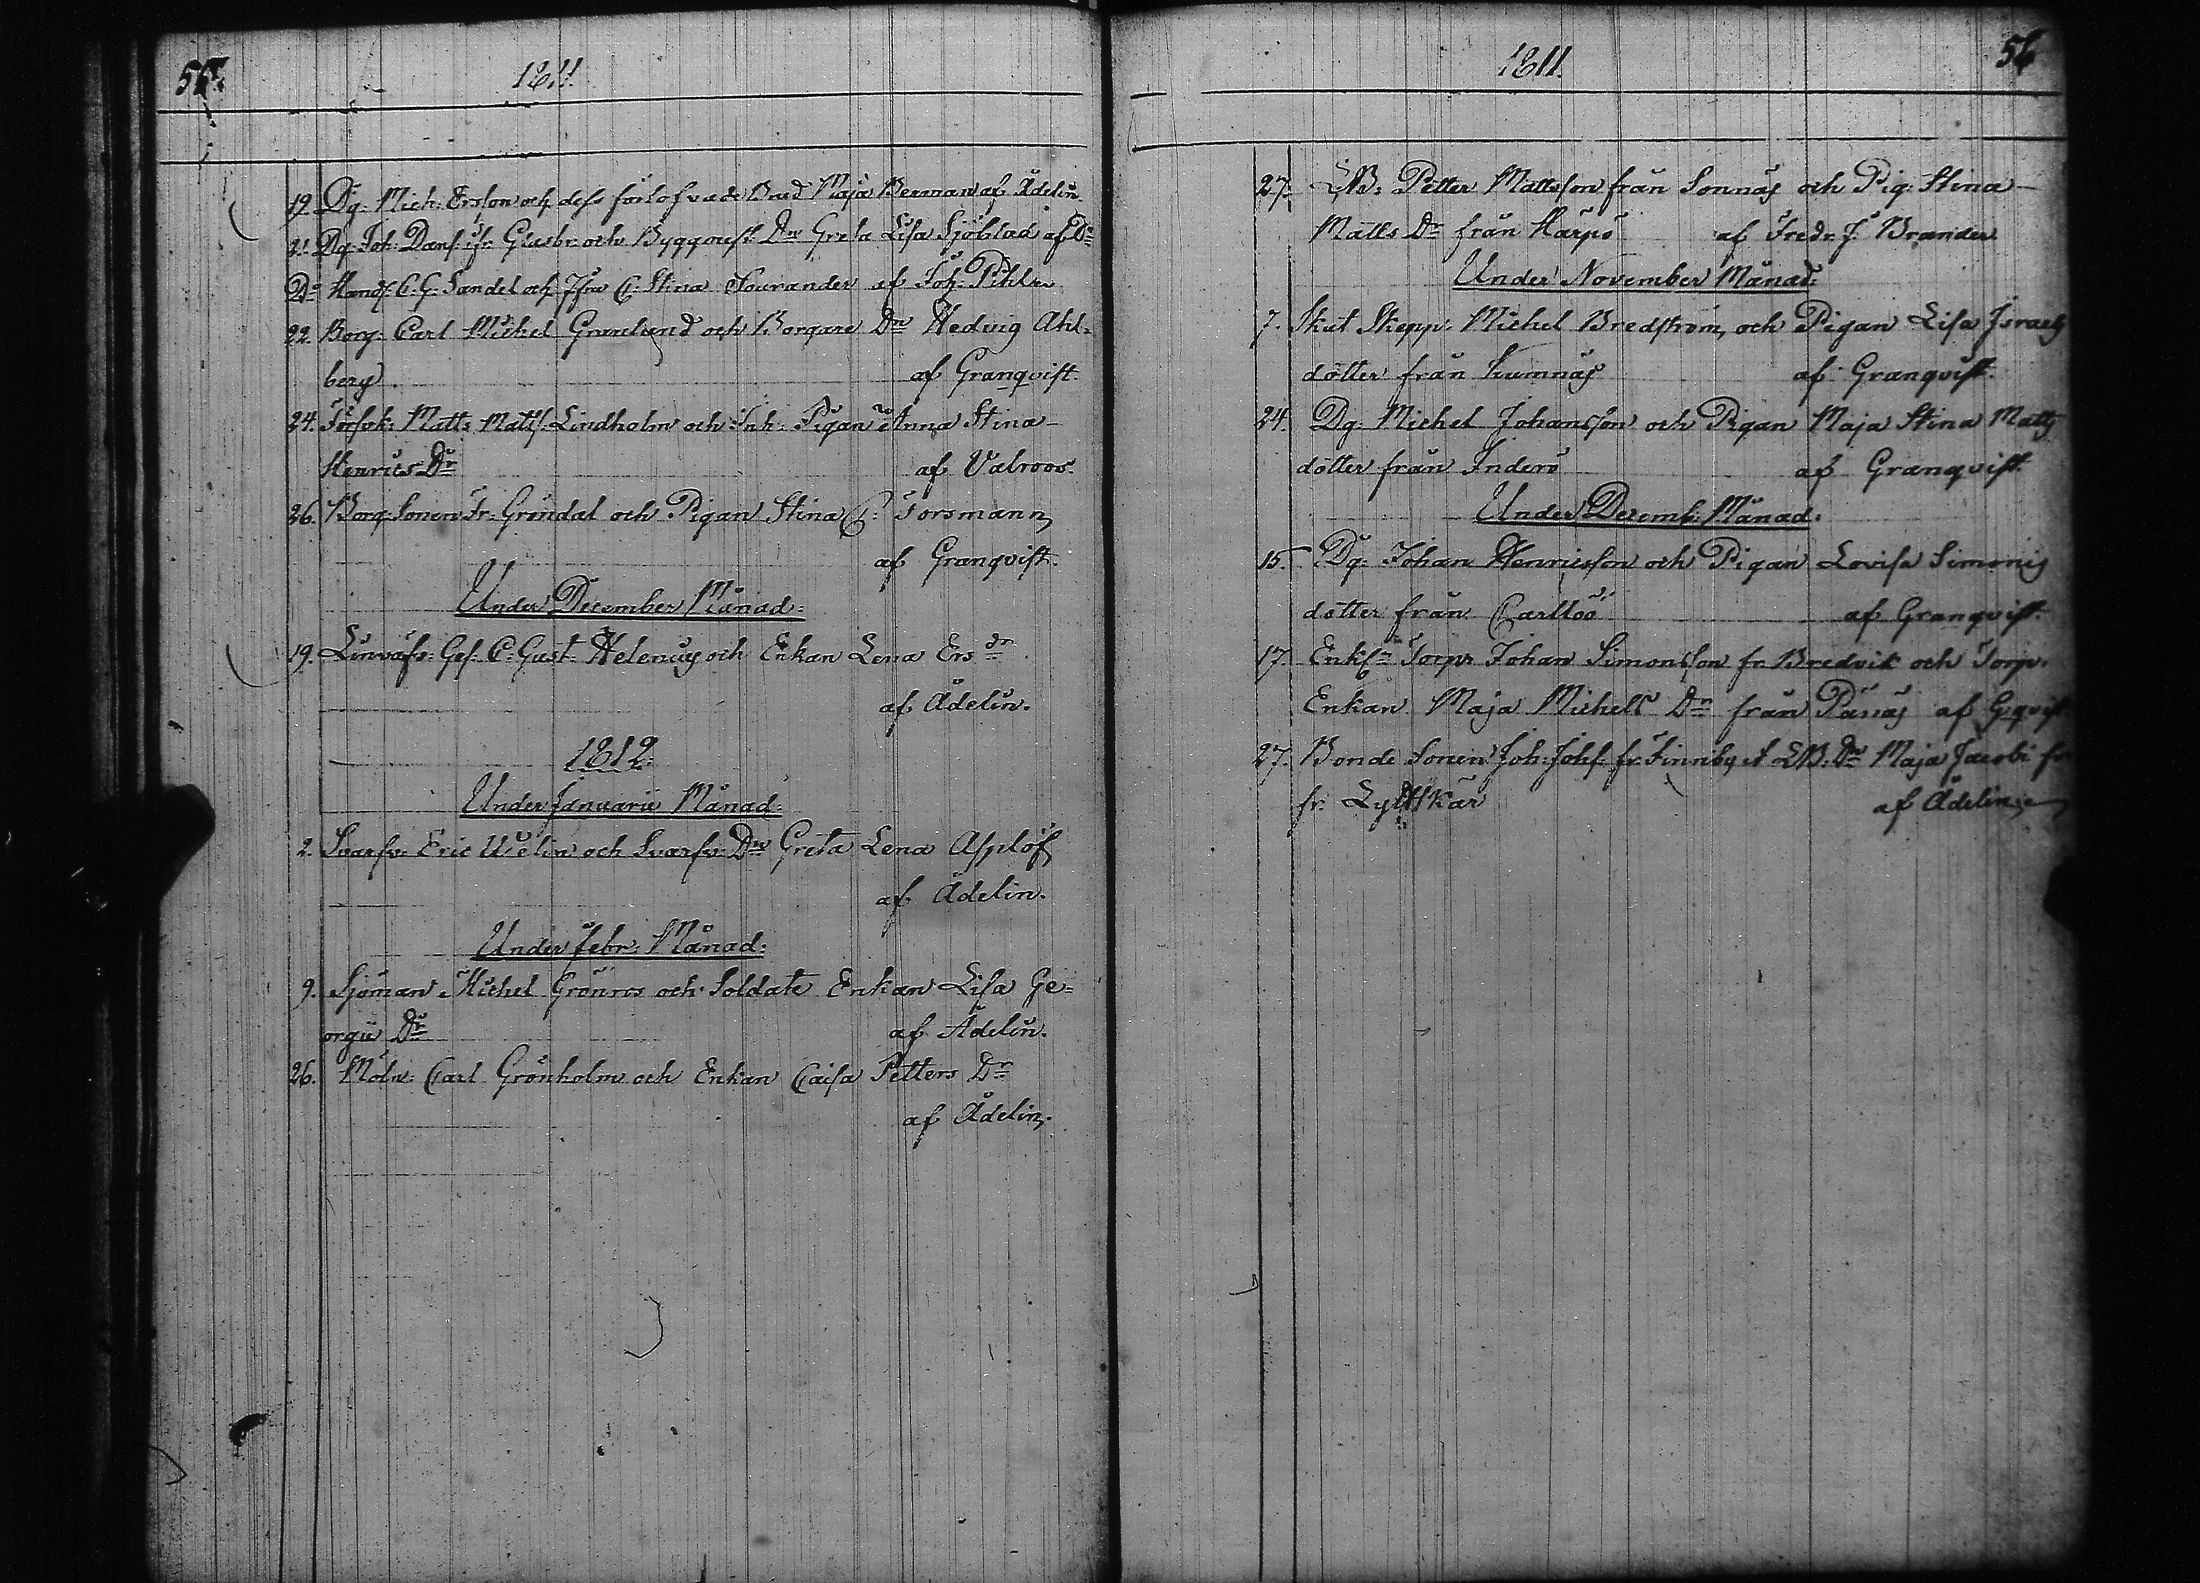 55.
1811.
19. Dg. Mich: Ersson och dess förlofvade Brud Maja Berman af Ådelin.
21. Dg. Joh: Dans: och Byggmest. Dr Greta Lisa Sjöblad af Do
Do Handl: C. G. Sandel och Jfru C: Stina Sourander af Joh: Pihl
22. Borg: Carl Michel Granlund och Borgare Dr Hedvig Ahl-
berg af Granqvist.
24. Försvk: Matts Matts: Lindholm och Inh: Pigan Anna Stina
Henrics Dr af Valroos.
26. Borg. Sonen Fr: Gröndal och Pigan Stina C: Forsmann
af Granqvist.
Under December Månad:
19. Linväfv: Ges: C: Gust: Helenius och Enkan Lena Ers dr
af Ådelin.
1812.
Under Januarii Månad:
2. Svarfv: Eric Uselin och Svarfv: Dr Greta Lena Asplöf
af Ådelin.
Under Febr: Månad:
9. Sjöman Michel Grönros och Soldate Enkan Lisa Ge-
orgii Dr af Ådelin.
26. Möln: Carl Grönholm och Enkan Caisa Petters Dr
af Ådelin.
1811.
56
27. LB: Petter Mattsson från Sonnäs och Pig: Stina
Matts Dr från Härpö af Fredr. J. Brander
Under November Månad:
7. Skut Skepp: Michel Bredström, och Pigan Lisa Israels
dötter från af Granqvist.
24. Dg: Michel Johansson och Pigan Maja Stina Matts
dötter från Inderö af Granqvist.
Under Decemb: Månad:
15. Dg: Johan Henricsson och Pigan Lovisa Simons
dötter från Carllöö af Granqvist.
17. Enkln Torp: Johan Simonsson fr. Bredvik och Torp.
Enkan Maja Michels Dr från Pånäs af Gqvist
27. Bonde Sonen Joh: Johs: fr. Finnby et LB: Dr Maja Jacobi fr
fr. Lyltskär af Ådelin